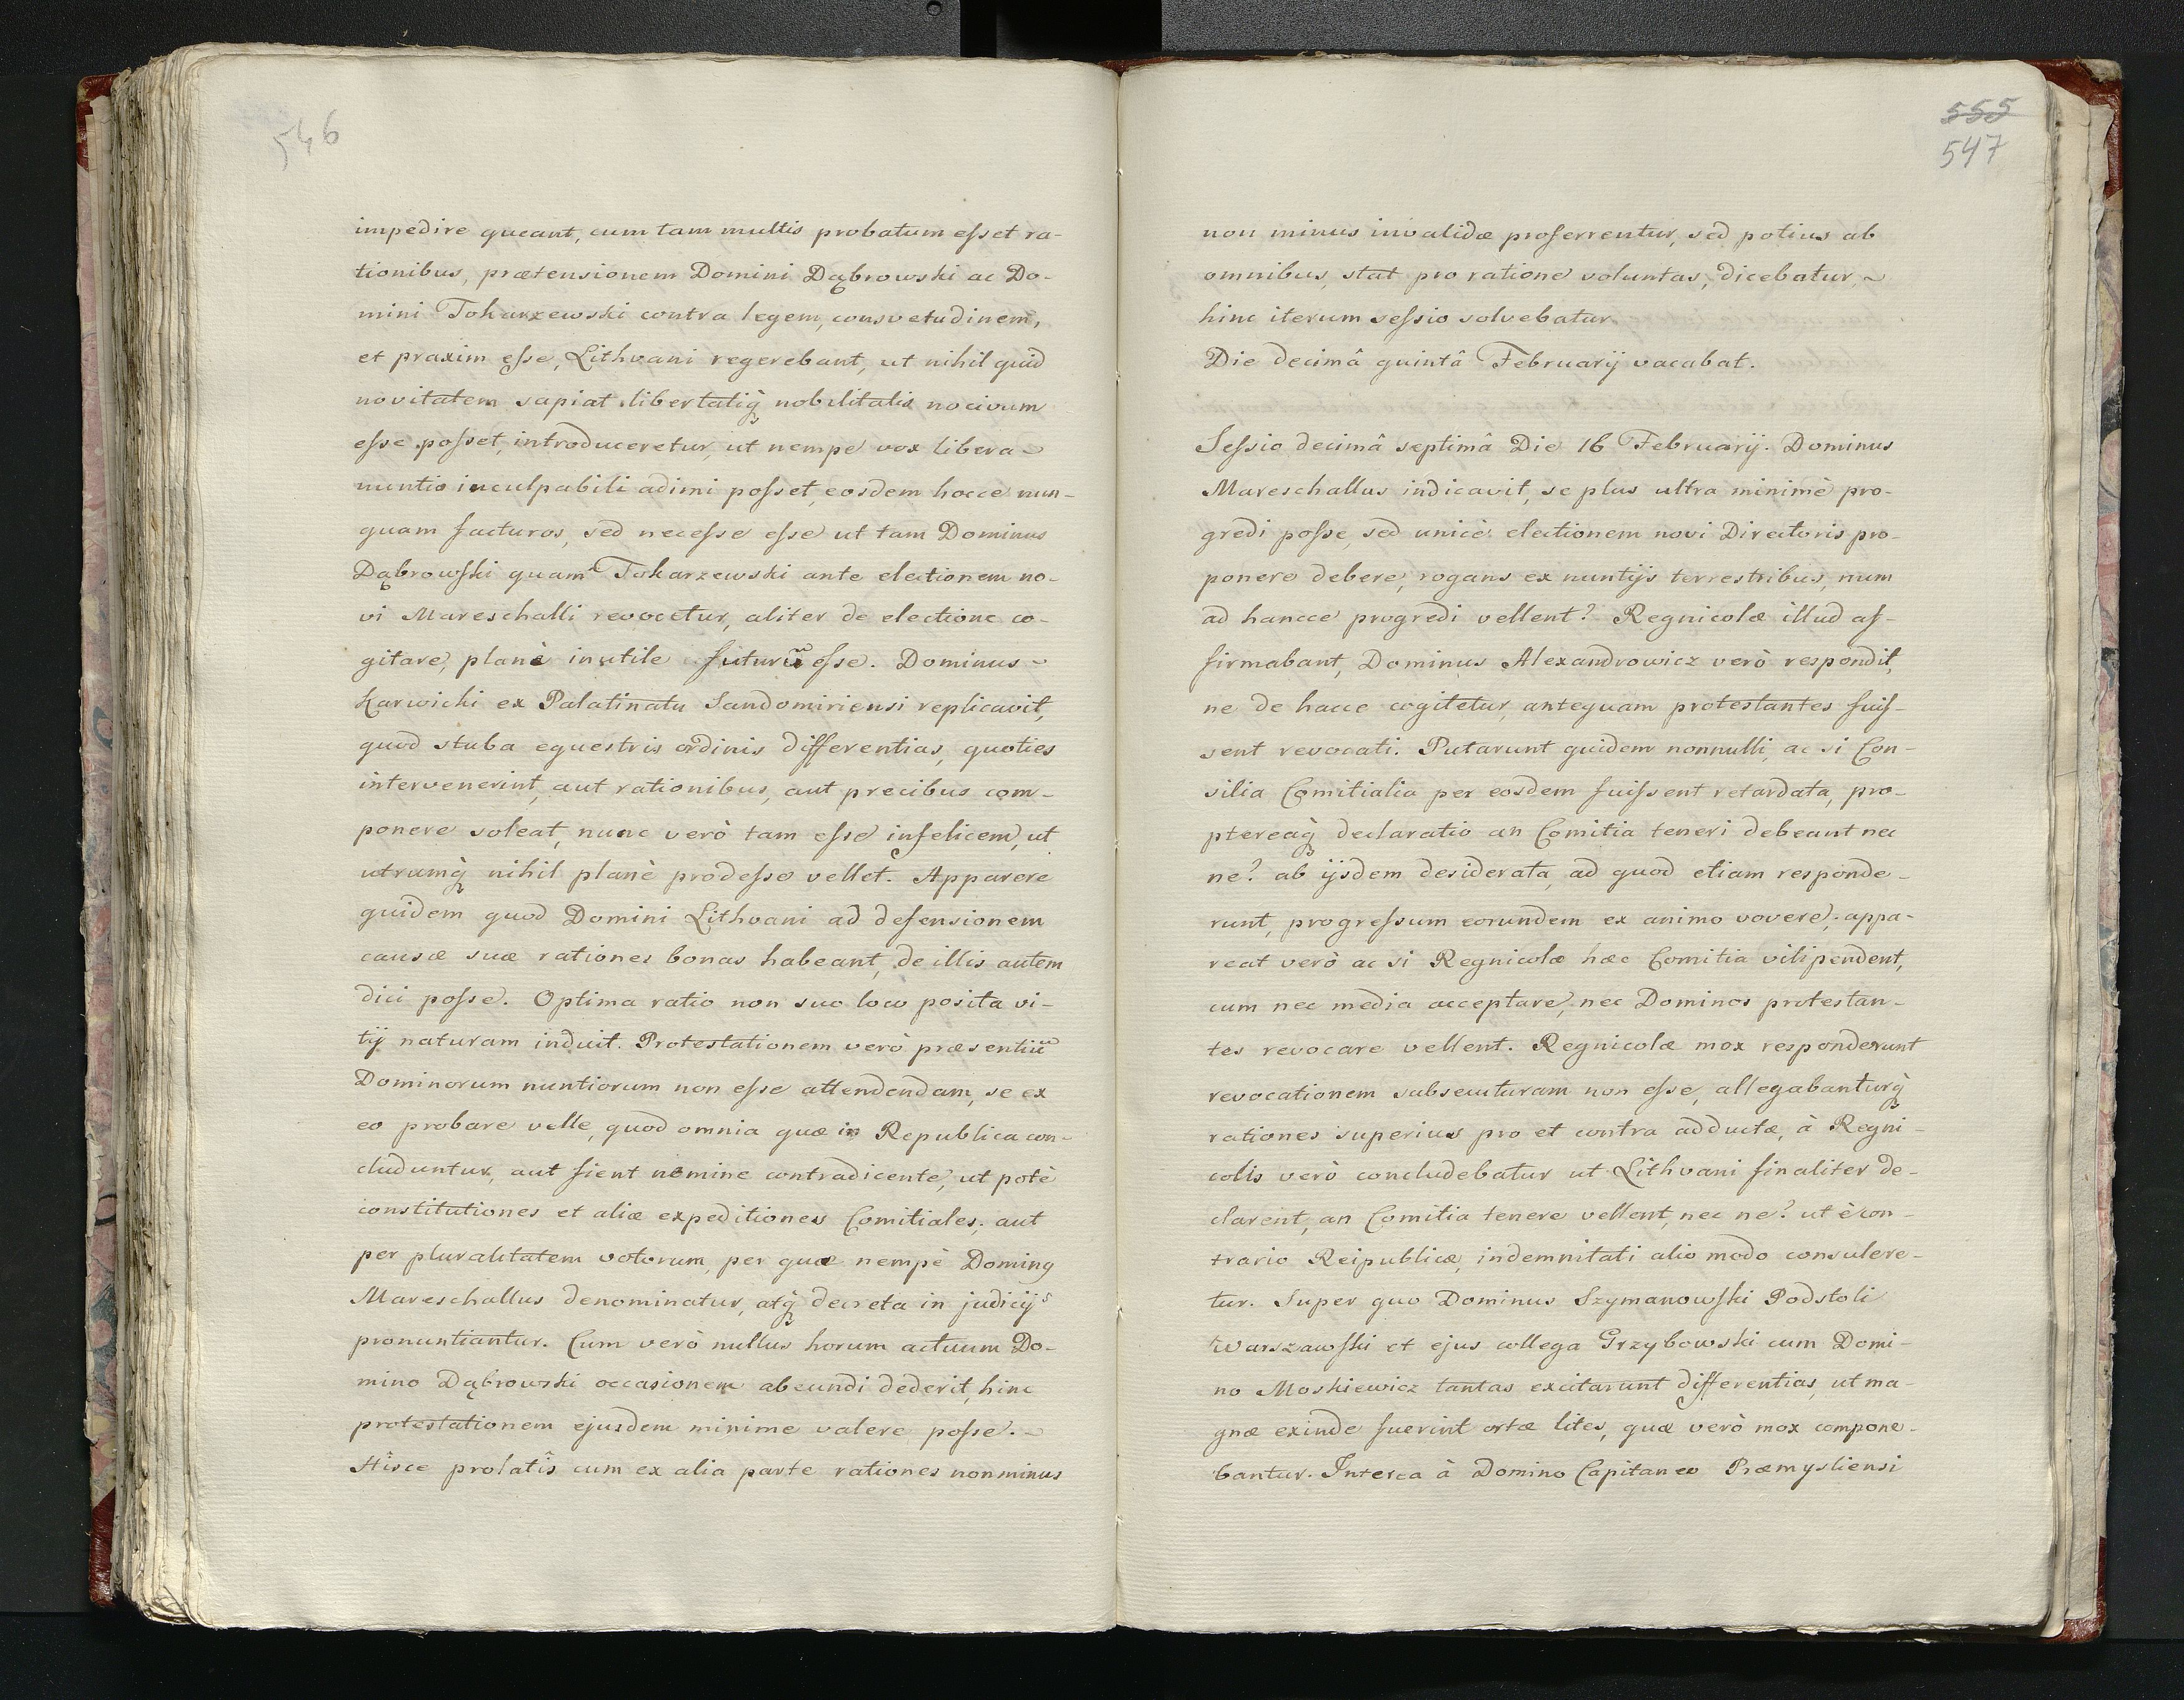 546
impedire queant, cum tam multis probatum esset ra-
tionibus, prætensionem Domini Dąbrowski ac Do-
mini Tokarzewski contra legem, consvetudinem,
et praxim esse, Lithvani regerebant, ut nihil quid
novitatem sapiat libertatiq̃ nobilitalis nocivum
esse posset, introduceretur, ut nempe vox libera
nuntio inculpabili adimi posset, eosdem hocce nun-
quam facturos, sed necesse esse ut tam Dominus
Dąbrowski quam Tokarzewski ante electionem no-
vi Mareschalli revocetur, aliter de electione co-
gitare, planè inutile futurũ esse. Dominus
Karwicki ex Palatinatu Sandomiriensi replicavit,
quod stuba equestris ordinis differentias, quoties
intervenerint, aut rationibus, aut precibus com-
ponere soleat, nunc verò tam esse infelicem, ut
utrumq̃ nihil planè prodesse vellet. Apparere
quidem quod Domini Lithvani ad defensionem
causæ suæ rationes bonas habeant, de illis autem
dici posse. Optima ratio non suo loco posita vi-
tij naturam induit. Protestationem verò præsentiũ
Dominorum nuntiorum non esse attendendam, se ex
eo probare velle, quod omnia quæ in Republica con-
cluduntur, aut fient nemine contradicente, ut potè
constitutiones et aliæ expeditiones Comitiales, aut
per pluralitatem votorum, per quæ nempè Dominꝯ
Mareschallus denominatur, atq̃ decreta in judicijs
pronuntiantur. Cum verò nullus horum actuum Do-
mino Dąbrowski occasionem abeundi dederit, hinc
protestationem ejusdem minime valere posse.
Hisce prolatîs cum ex alia parte rationes non minus
555
547
non minus invalidæ proferrentur, sed potius ab
omnibus, stat pro ratione voluntas, dicebatur,
hinc iterum sessio solvebatur.
Die decimâ quintâ Februarij vacabat.
Sessio decimâ septimâ Die 16 Februarij. Dominus
Mareschallus indicavit, se plus ultra minimè pro-
gredi posse, sed unicè electionem novi Directoris pro-
ponere debere, rogans ex nuntijs terrestribus, num
ad hancce progredi vellent? Regnicolæ illud af-
firmabant, Dominus Alexandrowicz verò respondit,
ne de hacce cogitetur, antequam protestantes fuis-
sent revocati. Putarunt quidem nonnulli, ac si Con-
silia Comitialia per eosdem fuissent retardata, pro-
ptereaq̃ declaratio an Comitia teneri debeant nec
ne? ab ijsdem desiderata, ad quod etiam responde-
runt, progressum eorundem ex animo vovere, appa-
reat verò ac si Regnicolæ hæc Comitia vilipendent,
cum nec media acceptare, nec Dominos protestan-
tes revocare vellent. Regnicolæ mox responderunt
revocationem subsecuturam non esse, allegabanturq̃
rationes superius pro et contra adductæ, à Regni-
colis verò concludebatur ut Lithvani finaliter de-
clarent, an Comitia tenere vellent, nec ne? ut è con-
trario Reipublicæ, indemnitati alio modo consulere-
tur. Super quo Dominus Szymanowski Podstoli
Warszawski et ejus collega Grzybowski cum Domi-
no Moskiewicz tantas excitarunt differentias, ut ma-
gnæ exinde fuerint ortæ lites, quæ verò mox compone-
bantur. Interea à Domino Capitaneo Præmysliensi